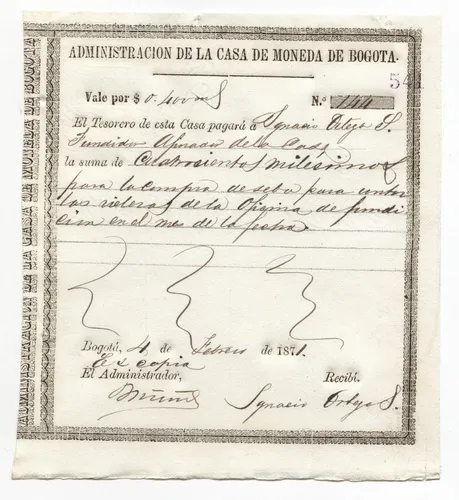 ADMINISTRACION DE LA CASA DE MONEDA DE BOGOTA
ADMINISTRACION DE LA CASA DE MONEDA DE BOGOTA.
54
Vale por $ 0.400 ms
N.º 144
El Tesorero de esta Casa pagará á Ignacio Ortega S.
Fundidor Afinador de la Casa
la suma de Cuatrocientos milésimos
para la compra de sebo para untar
las rieleras de la Oficina de fundi
cion en el mes de la fecha
Bogotá, 4 de Febrero de 1871.
Es copia
El Administrador,
Recibí.
Ignacio Ortega S.